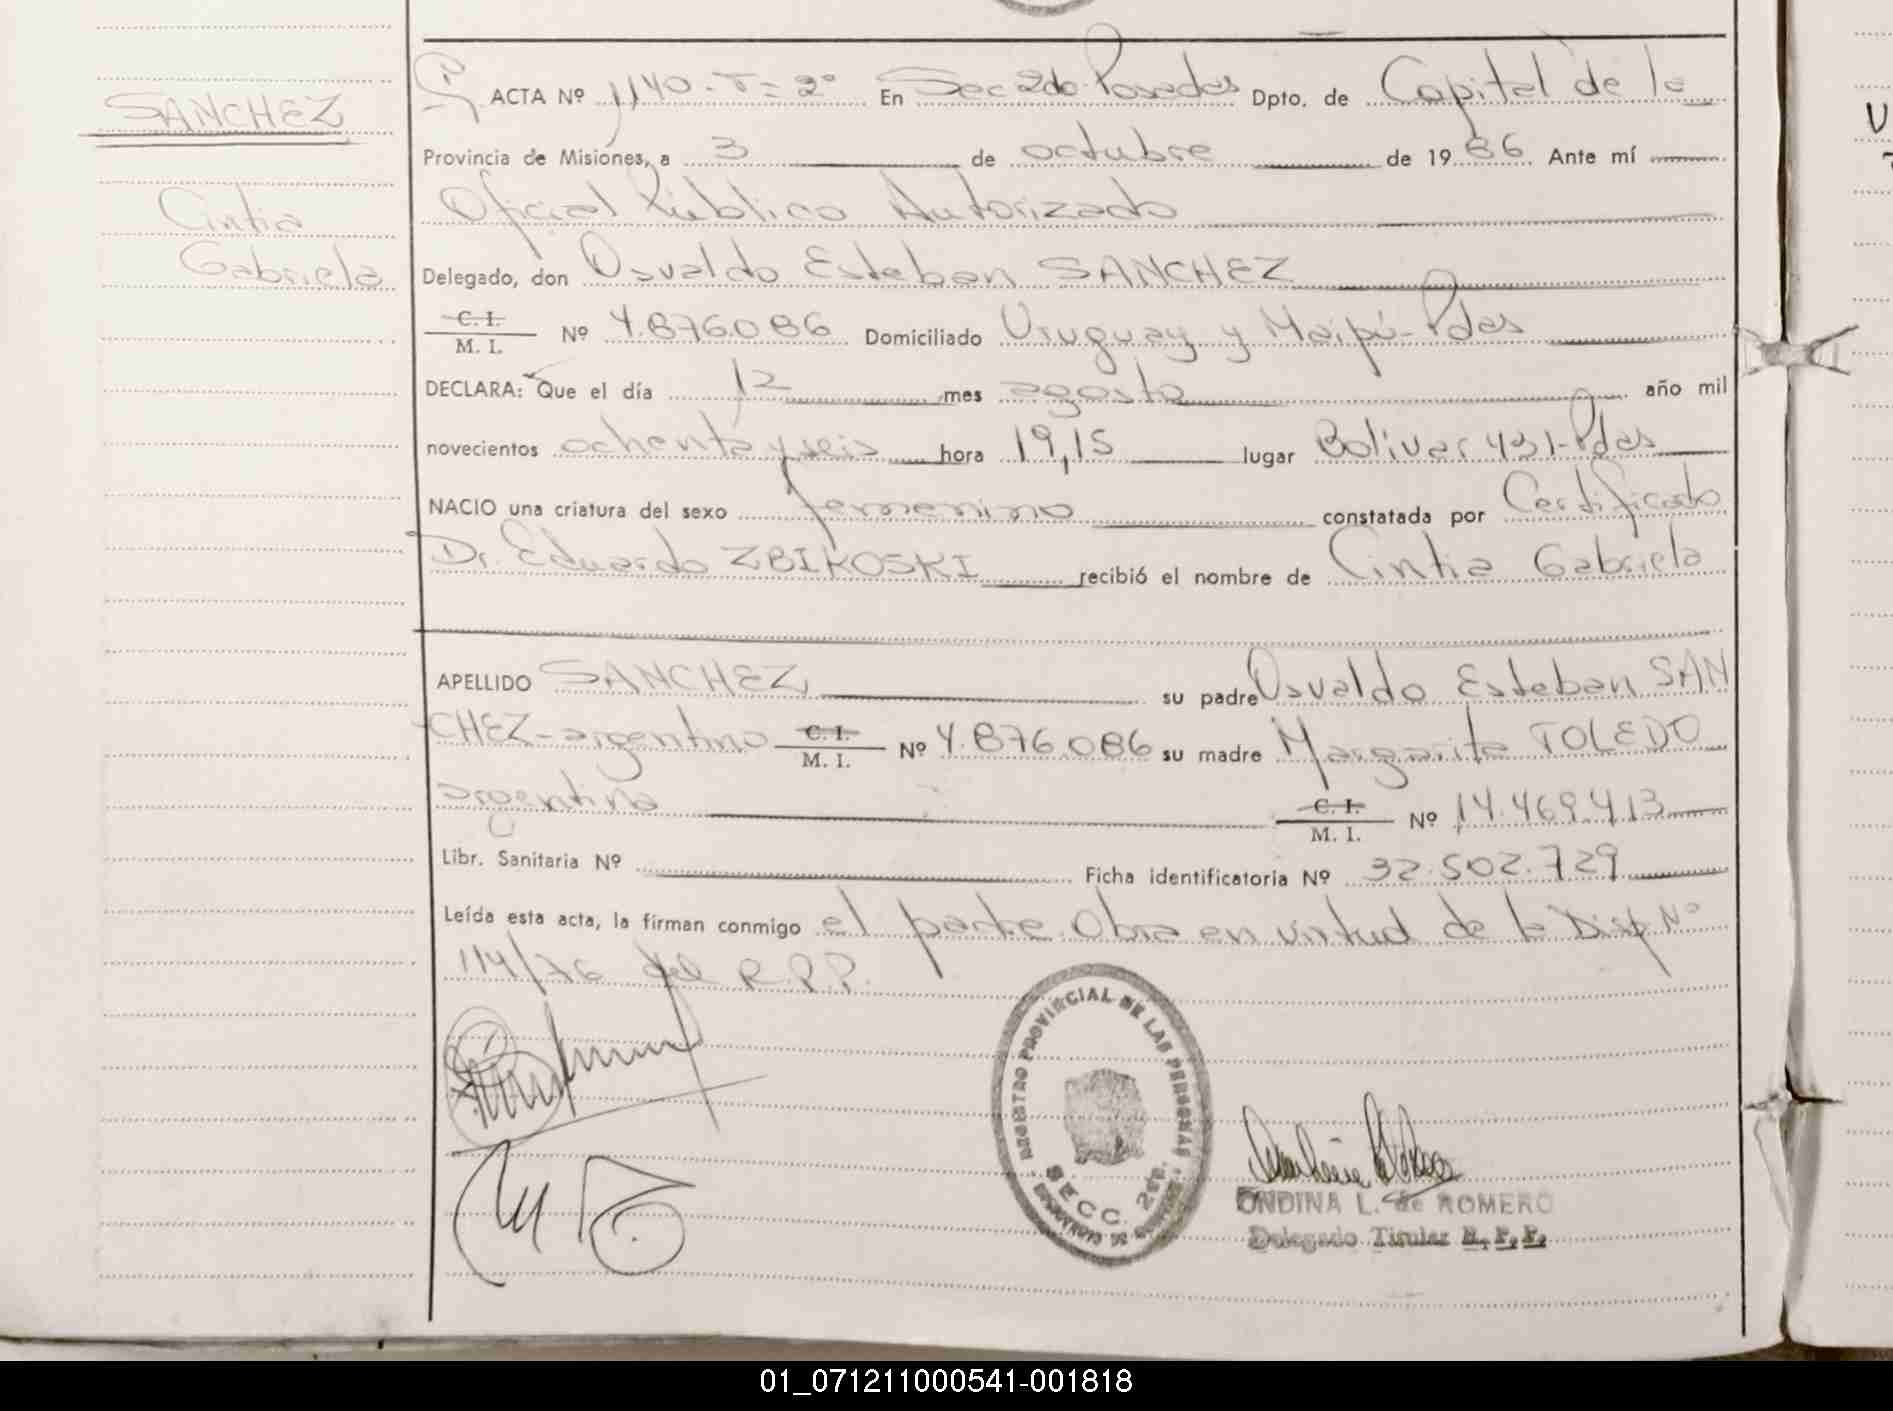 SANCHEZ
Cintia
Gabriela
ACTA Nº 1140-T=2º En Sec 2do Posadas Dpto. de Capital de la
Provincia de Misiones, a 3 de octubre de 1986 Ante mí
Oficial Público Autorizado
Delegado, don Osvaldo Esteban SANCHEZ
C. I.
M. I. Nº 4.876.086 Domiciliado Uruguay y Maipú-Pdas
DECLARA: Que el día 12 mes agosto año mil
novecientos ochenta y seis hora 19,15 lugar Bolivar 431-Pdas
NACIO una criatura del sexo femenino constatada por Certificado
Dr. Eduardo ZBIKOSKI recibió el nombre de Cintia Gabriela
APELLIDO SANCHEZ su padre Osvaldo Esteban SAN
CHEZ-argentino C. I. M. I. Nº 4.876.086 su madre Margarita TOLEDO
argentina C. I. M. I. Nº 14.469.413
Libr. Sanitaria Nº Ficha identificatoria Nº 32.502.729
Leída esta acta, la firman conmigo el padre Obra en virtud de la Disp Nº
114/76 del R.P.P.
REGISTRO PROVINCIAL DE LAS PERSONAS
SECC. 2da.
ONDINA L. de ROMERO
Delegado Titular R. P. P.
01_071211000541-001818